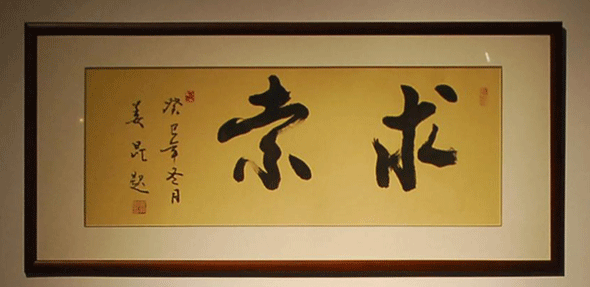 求索
癸巳年冬月
姜昆题